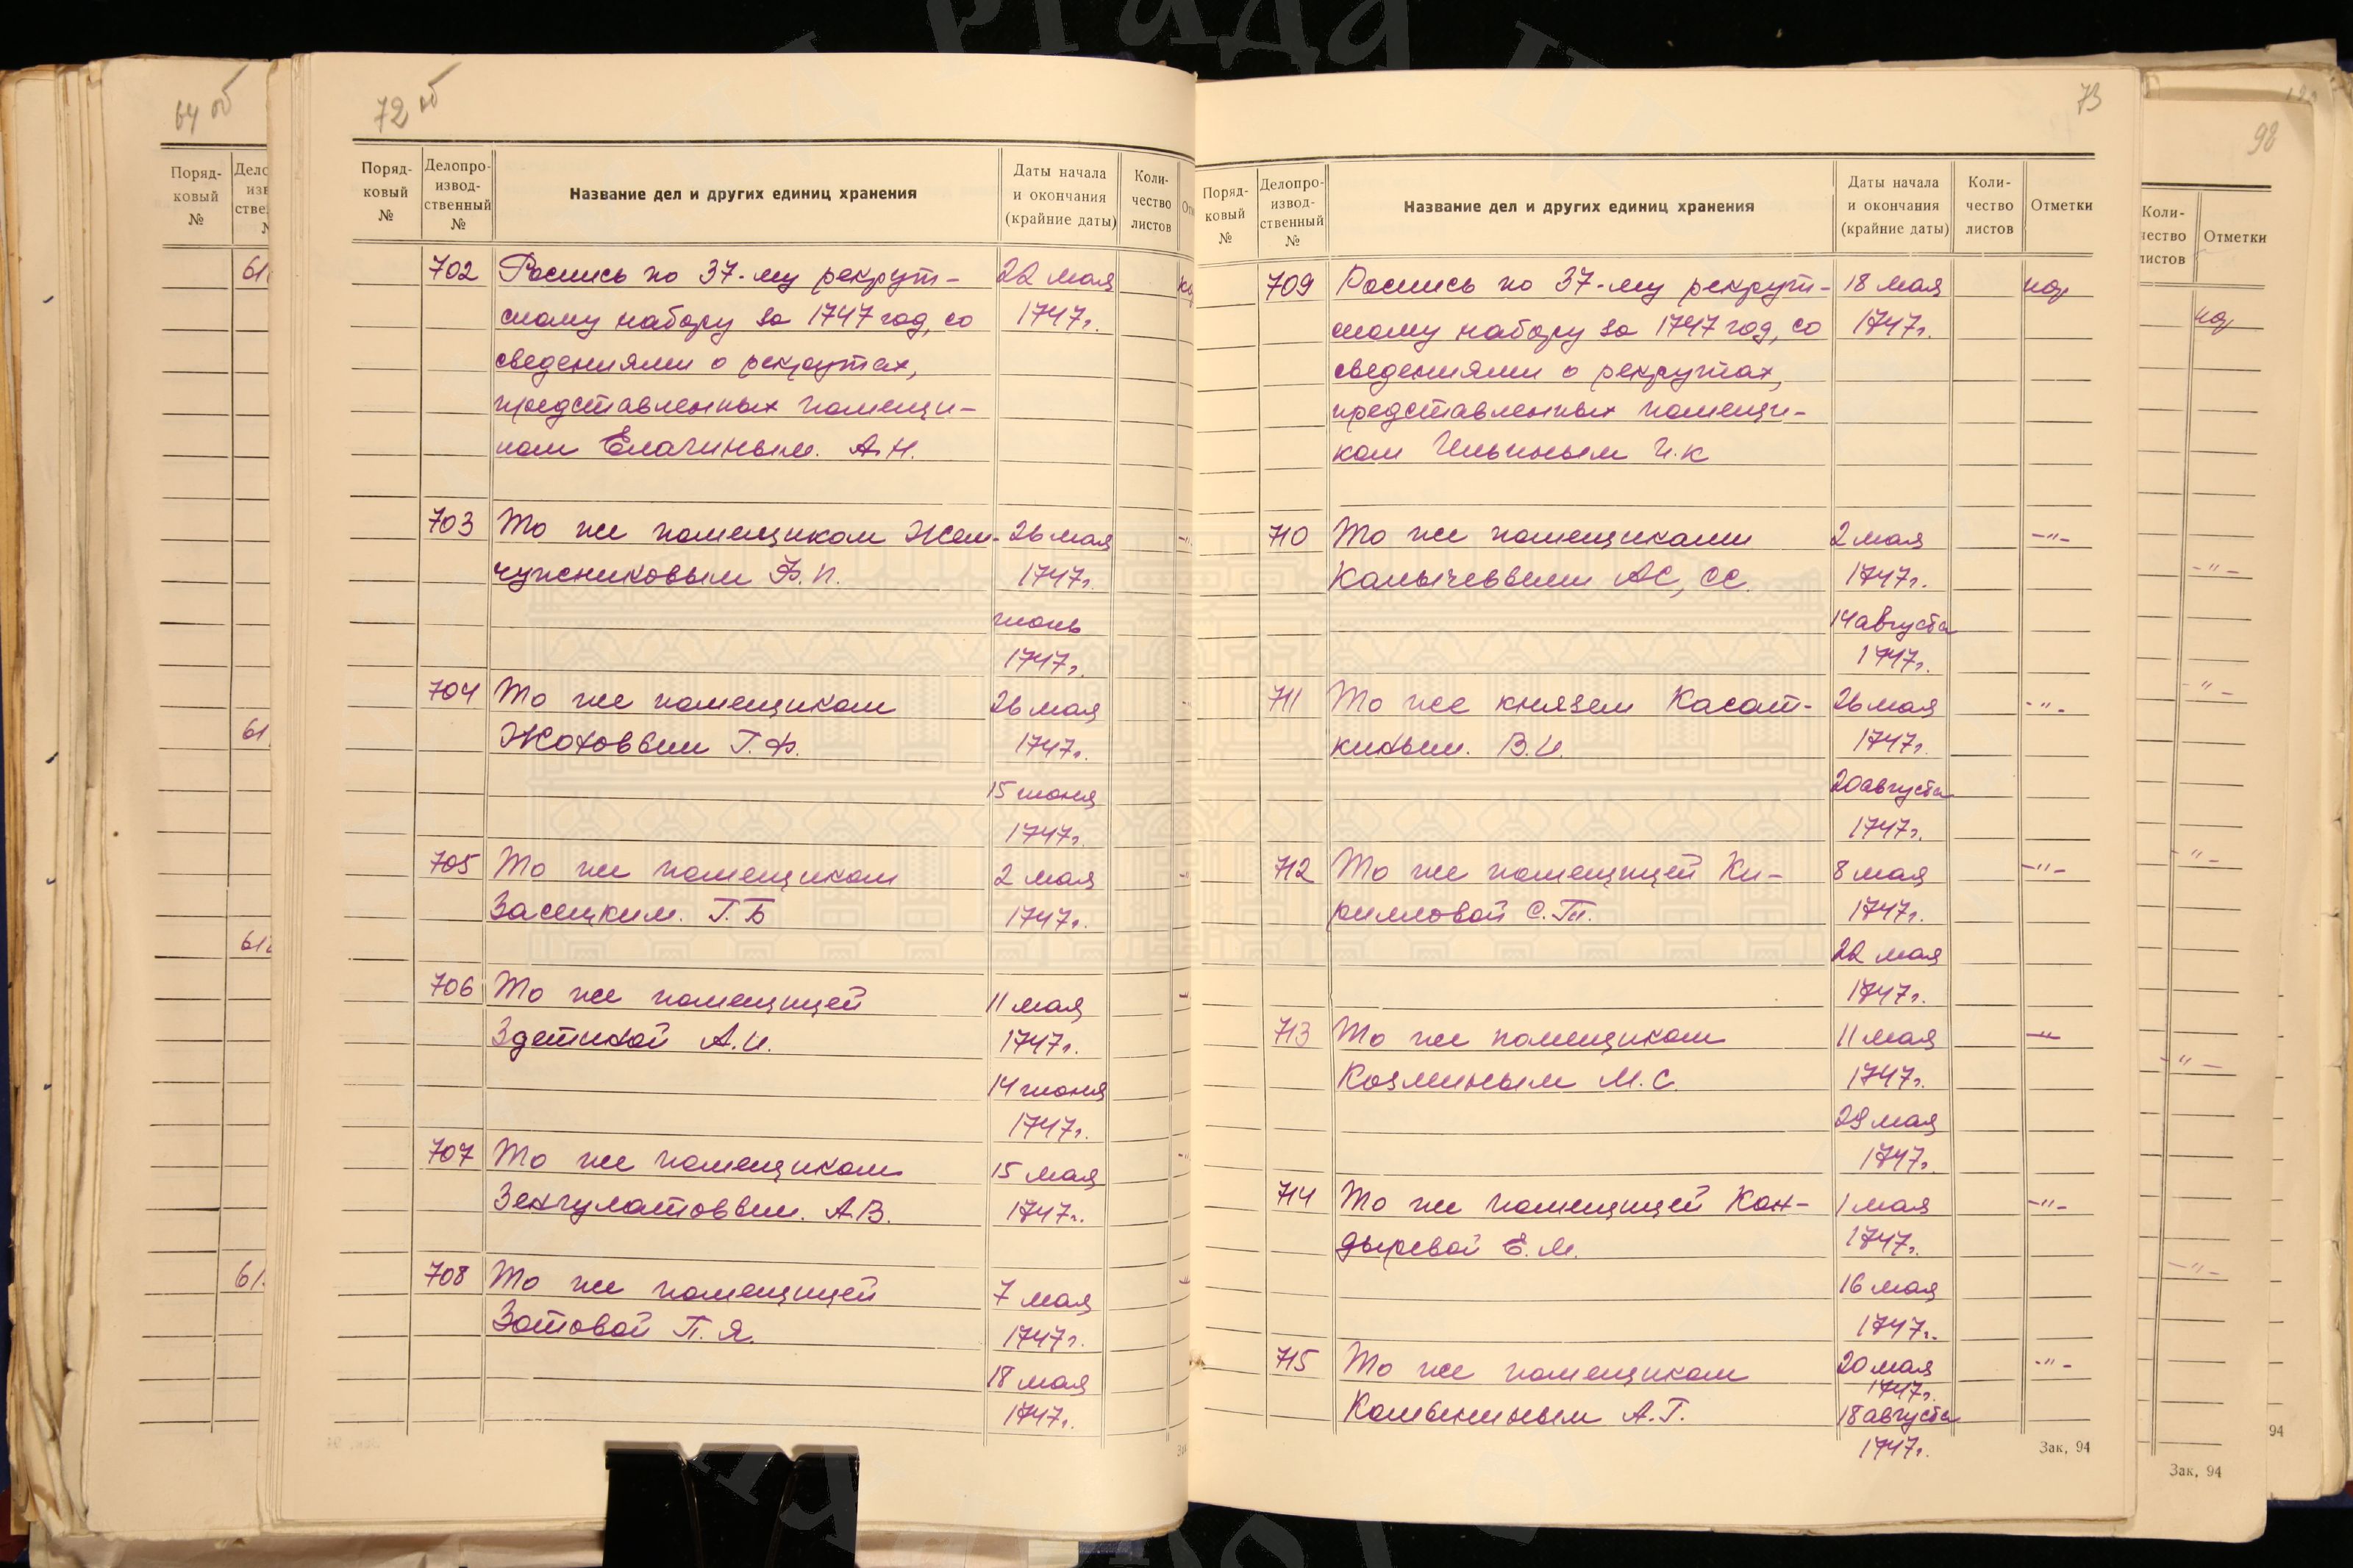 64 об
Поряд-
ковый
№
61
61
61
61
72 об
Поряд-
ковый
№
Делопро-
извод-
ственный
№
Название дел и других единиц хранения
Даты начала
и окончания
(крайние даты)
Коли-
чество
листов
702 Роспись по 37-му рекрут- 22 мая
скому набору за 1747 год, со 1747г.
сведениями о рекрутах,
представленных помещи-
ком Елагиным. А.Н.
703 То же помещиком Жем- 26 мая
чужниковым Ф.П. 1747г.
июнь
1747г.
704 То же помещиком 26 мая
Жоховвым Г.Ф. 1747г.
15 июня
1747г.
705 То же помещиком 2 мая
Засецким. Г.Б 1747г.
706 То же помещицей 11 мая
Здетикой А.И. 1747г.
14 июня
1747г.
707 То же помещиком 15 мая
Зенгулатоввым. А.В. 1747г.
708 То же помещицей 7 мая
Зотовой П.Я. 1747г.
18 мая
1747г.
73
Поряд-
ковый
№
Делопро-
извод-
ственный
№
Название дел и других единиц хранения
Даты начала
и окончания
(крайние даты)
Коли-
чество
листов
Отметки
709 Роспись по 37-му рекрут- 18 мая
скому набору за 1747 год, со 1747г.
сведениями о рекрутах,
представленных помещи-
ком Ильиным И.К
710 То же помещиками 2 мая -"-
АС, СС. 1747г.
14 августа
1747г.
711 То же князем Касат- 26 мая -"-
кином. В.И. 1747г.
20 августа
1747г.
712 То же помещицей Ки- 8 мая -"-
рилловой С.Т. 1747г.
22 мая
1747г.
713 То же помещиком 11 мая -"-
Козминым М.С. 1747г.
29 мая
1747г.
714 То же помещицей Кон- 1 мая -"-
дыревой Е.М. 1747г.
16 мая
1747г.
715 То же помещиком 20 мая -"-
1747г.
А.Г. 18 августа
1747г.
Зак, 94
98
Коли-
чество
листов
Отметки
-"-
-"-
-"-
-"-
-"-
Зак, 94
94